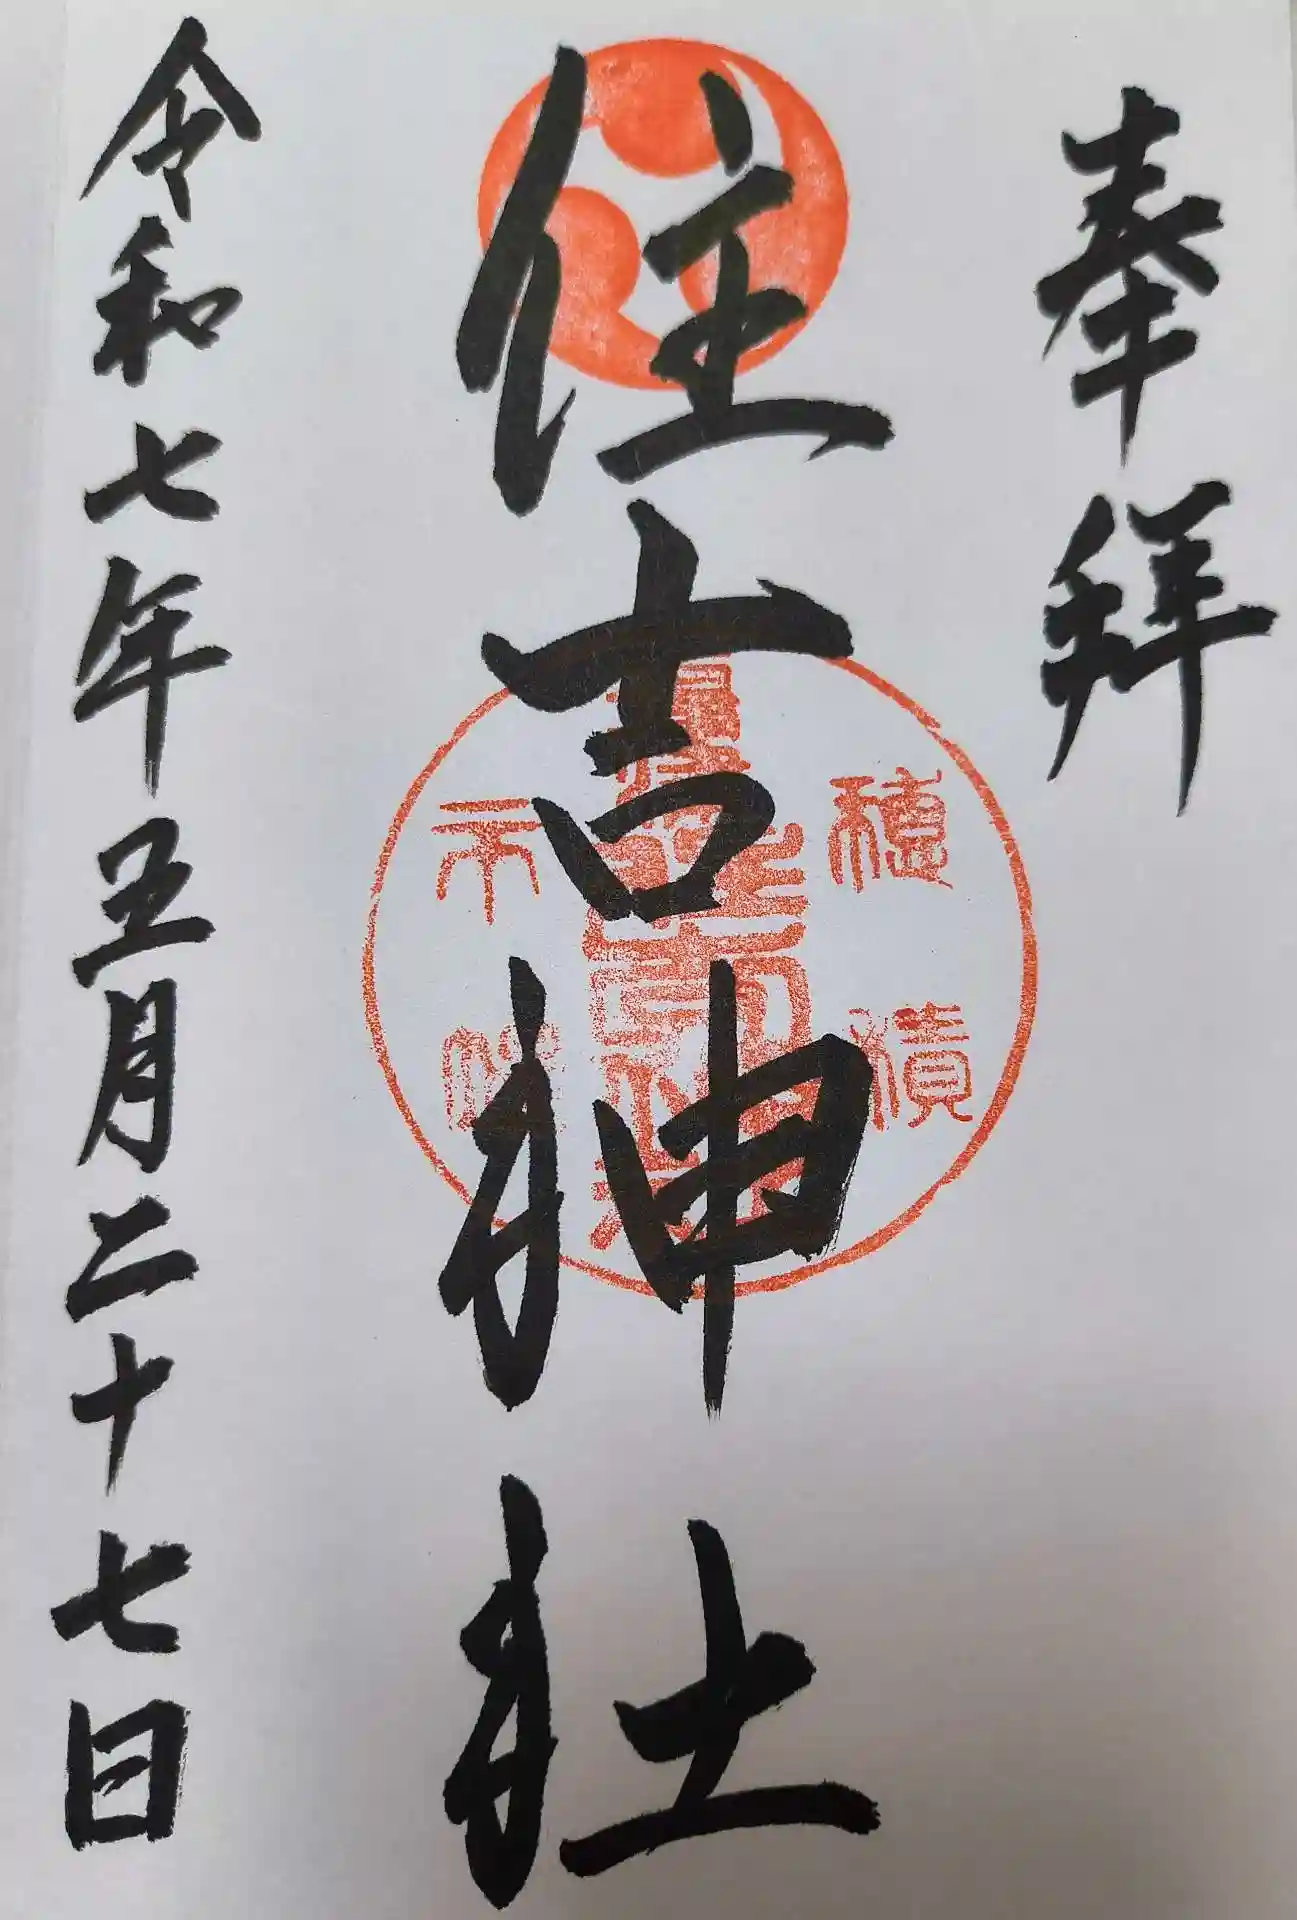 奉拜
住吉神社
穂積
令和七年五月二十七日